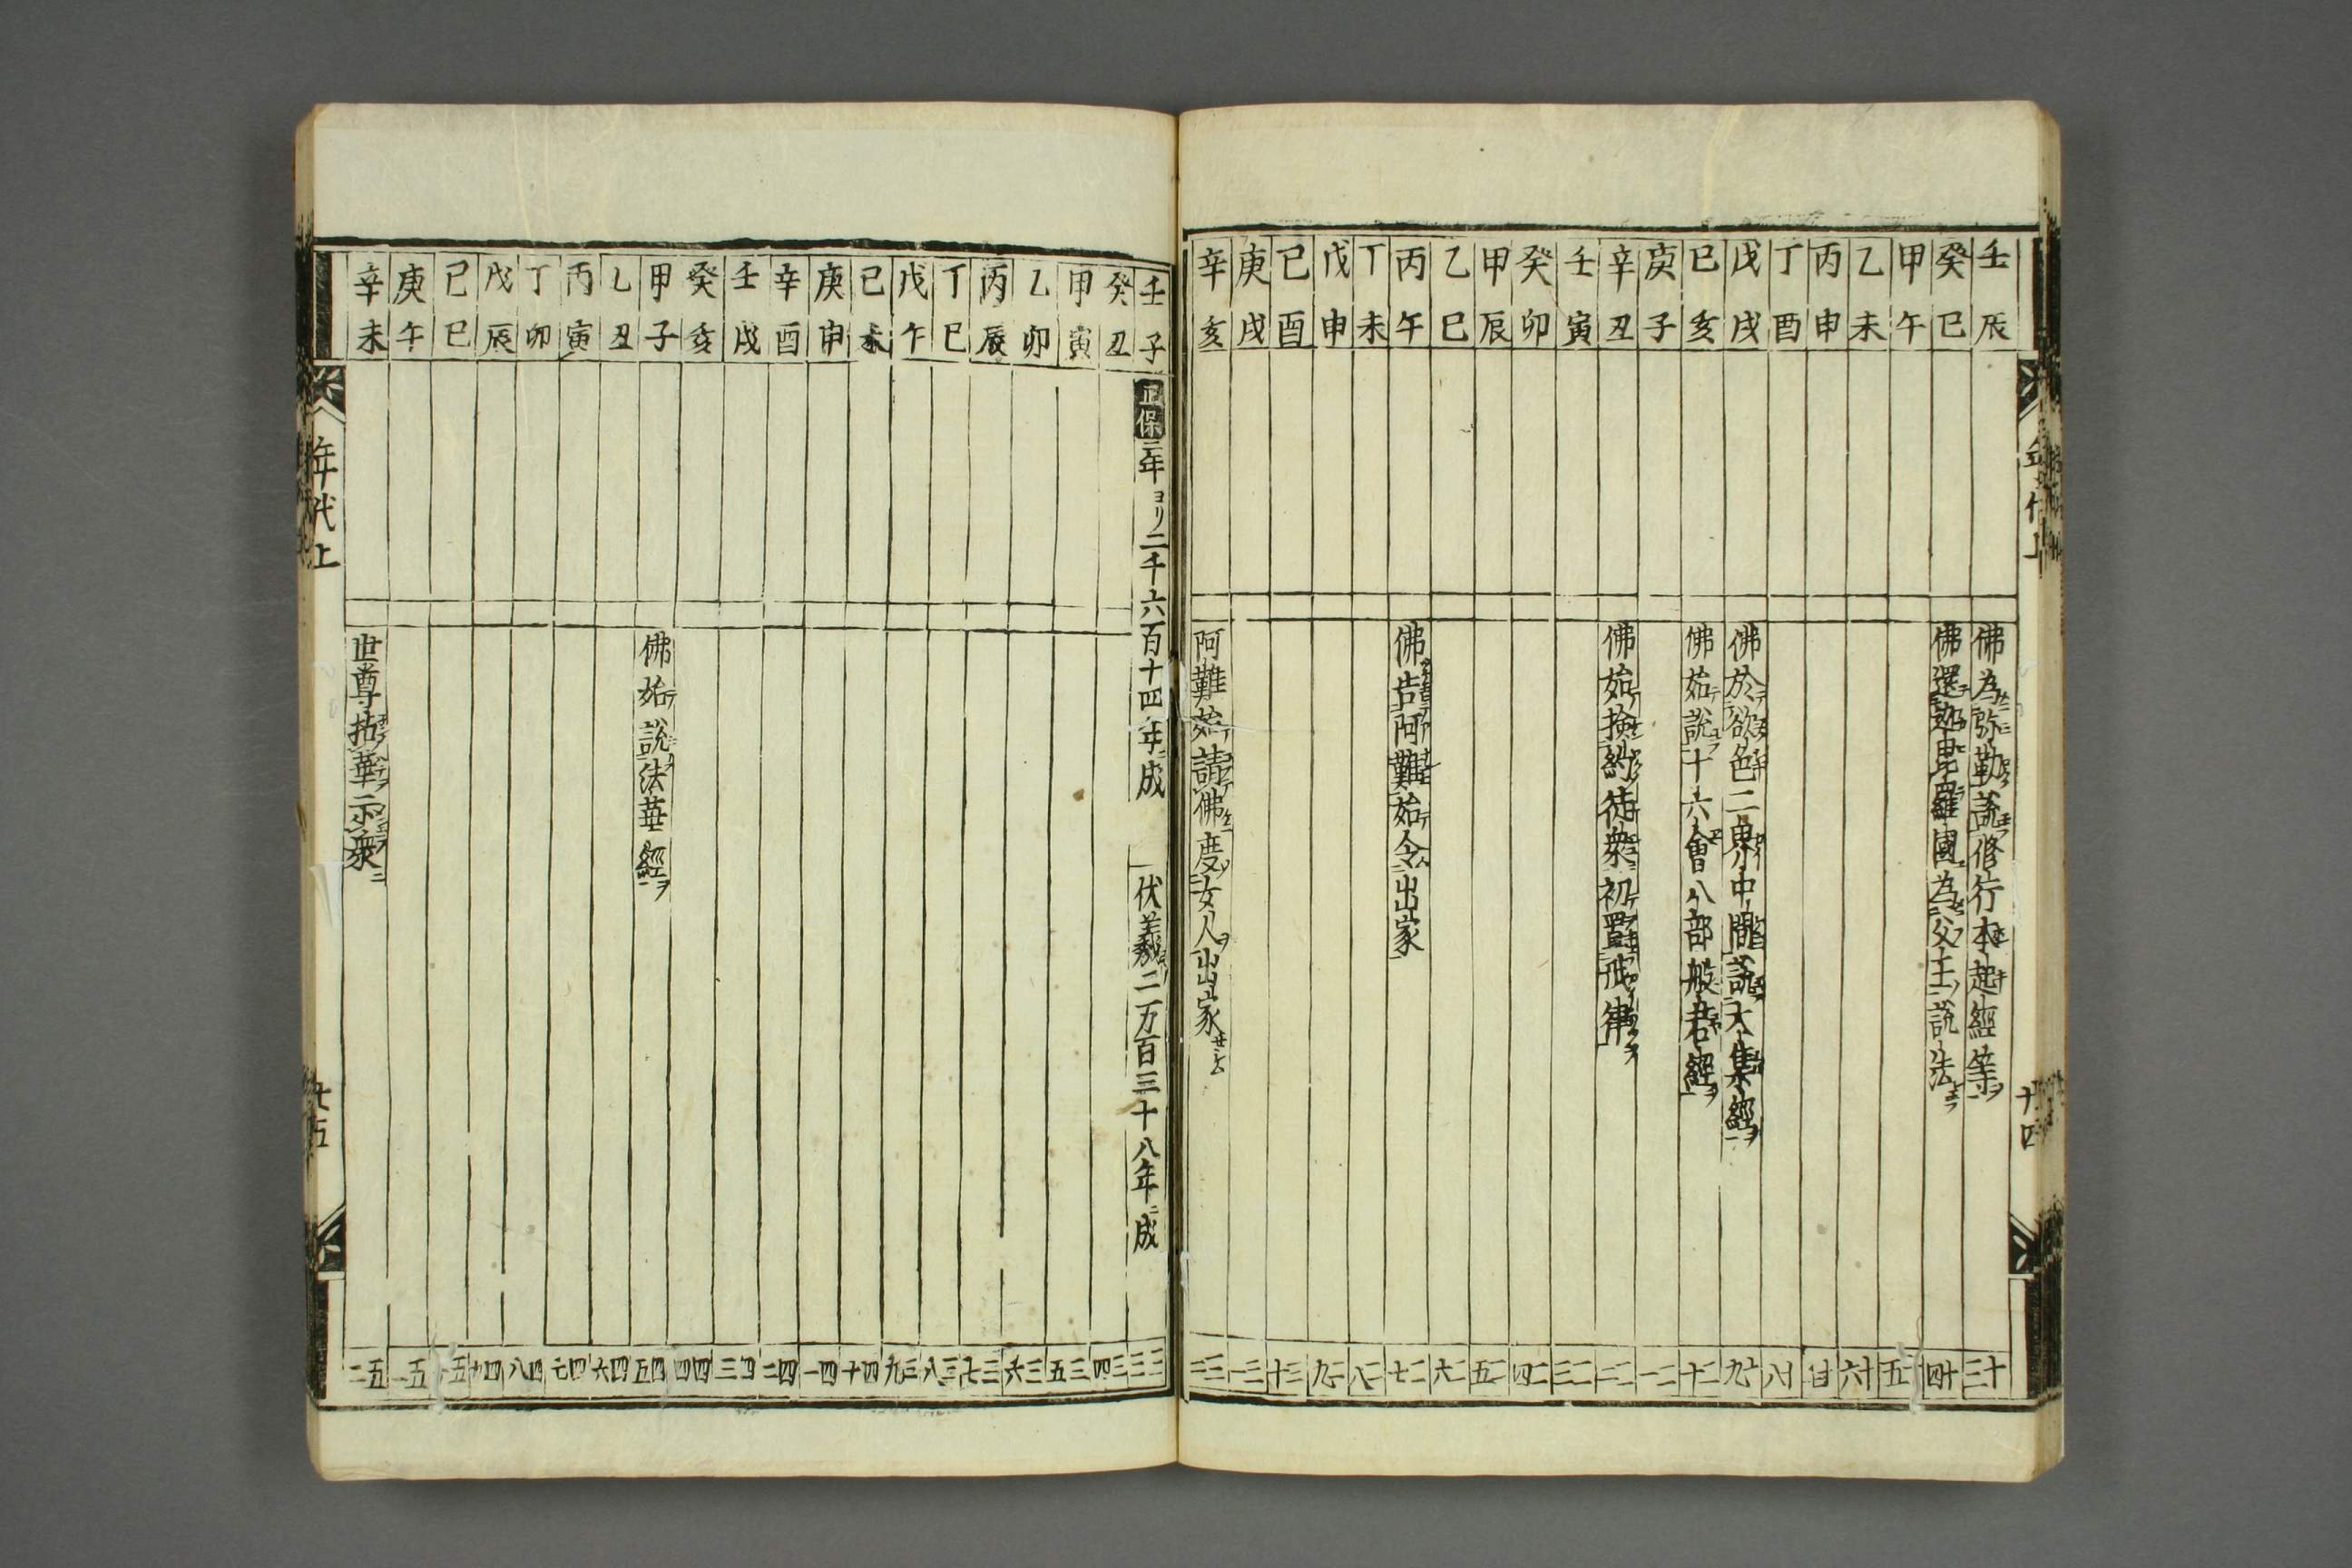 壬辰 佛為弥勒說修行本起經等 十三
癸巳 佛還迦毘羅國為父王說法 十四
甲午 十五
乙未 十六
丙申 廿
丁酉 十八
戊戌 佛於欲色二界中間說大集經 十九
己亥 佛始說十六會八部般若經 二十
庚子 二一
辛丑 佛始撿約徒衆初置戒律 二二
壬寅 二三
癸卯 二四
甲辰 二五
乙巳 二六
丙午 佛告阿難始令出家 二七
丁未 二八
戊申 二九
己酉 三十
庚戌 三一
辛亥 阿難始請佛度女人出家 三二
壬子 正保二年ヨリ二千六百十四年成 伏羲二万百三十八年成 三三
癸丑 三四
甲寅 三五
乙卯 三六
丙辰 三七
丁巳 三八
戊午 三九
己未 四十
庚申 四一
辛酉 四二
壬戌 四三
癸亥 四四
甲子 佛始說法華經 四五
乙丑 四六
丙寅 四七
丁卯 四八
戊辰 四九
己巳 五十
庚午 五一
辛未 世尊拈華示衆 五二
年代上